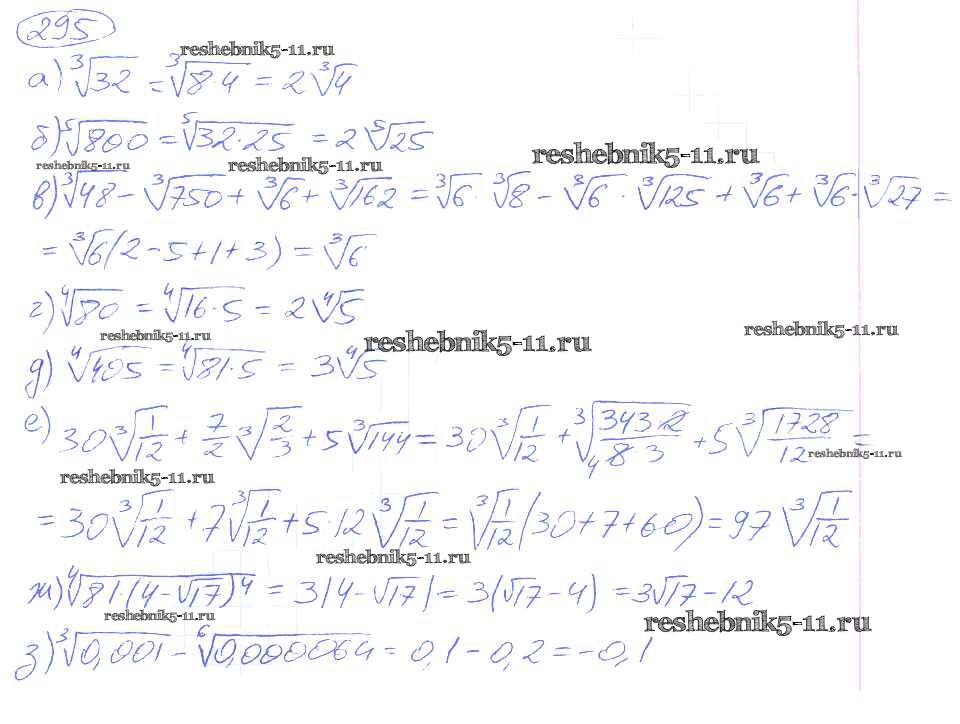 295
reshebnik5-11.ru
а) ∛32 = ∛(8·4) = 2∛4
б) ⁵√800 = ⁵√(32·25) = 2 ⁵√25
reshebnik5-11.ru reshebnik5-11.ru reshebnik5-11.ru
в) ∛48 − ∛750 + ∛6 + ∛162 = ∛6 · ∛8 − ∛6 · ∛125 + ∛6 + ∛6 · ∛27 =
= ∛6 (2 − 5 + 1 + 3) = ∛6
г) ∜80 = ∜(16·5) = 2∜5
reshebnik5-11.ru reshebnik5-11.ru reshebnik5-11.ru
д) ∜405 = ∜(81·5) = 3∜5
е) 30∛(1/12) + 7/2 ∛(2/3) + 5∛144 = 30∛(1/12) + ∛((343·2)/(8·3)) 4 + 5∛(1728/12) =
reshebnik5-11.ru reshebnik5-11.ru
= 30∛(1/12) + 7∛(1/12) + 5·12∛(1/12) = ∛(1/12) (30 + 7 + 60) = 97∛(1/12)
reshebnik5-11.ru
ж) ∜(81·(4 − √17)⁴) = 3|4 − √17| = 3(√17 − 4) = 3√17 − 12
reshebnik5-11.ru reshebnik5-11.ru
з) ∛0,001 − ⁶√0,000064 = 0,1 − 0,2 = −0,1